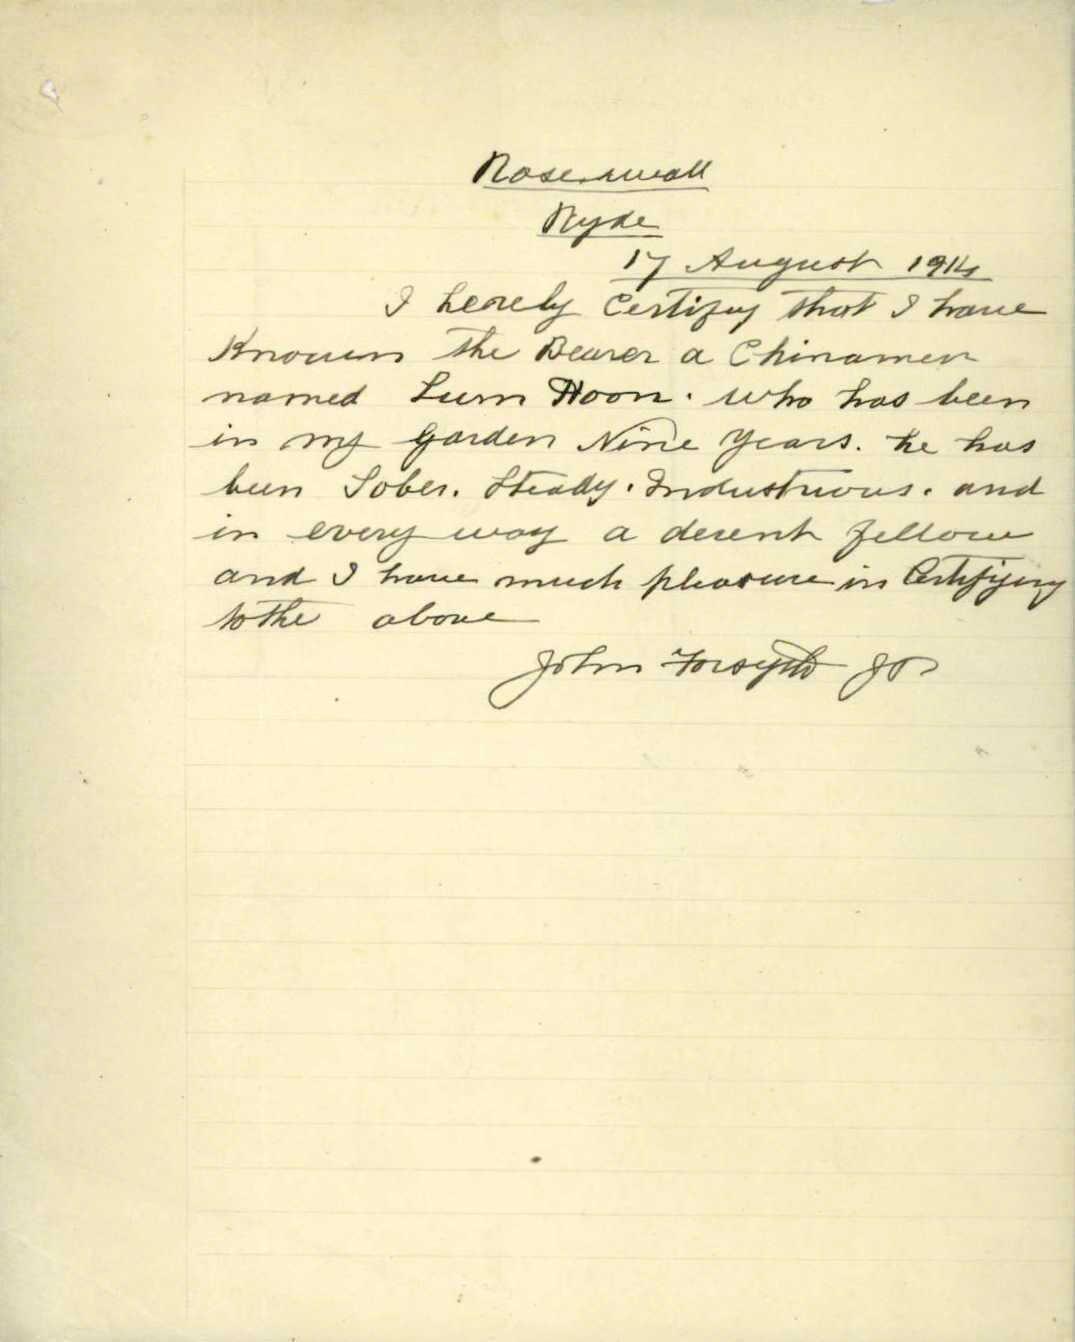 Rosenwall
Ryde
17 August 1914
I hereby Certify that I have
Known the Bearer a Chinamen
named Lum Hoon. who has been
in my Garden Nine Years. he has
been Sober. Steady. Industrious. and
in every way a decent fellow
and I have much pleasure in Certifying
to the above
John Forsyth JP